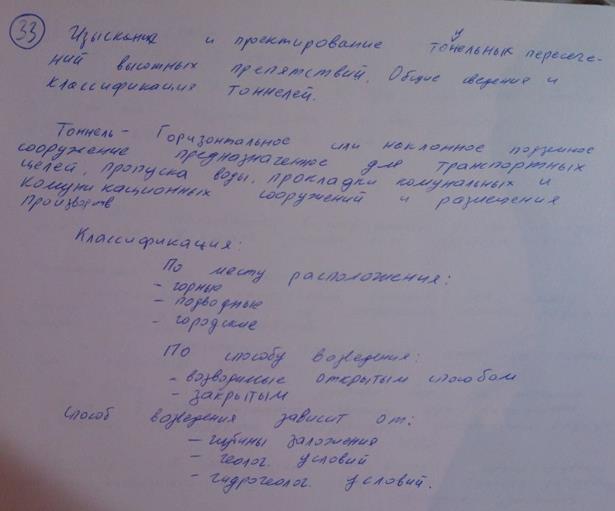 33 Изыскания и проектирование тонельных пересече-
ний высотных препятствий. Общие сведения и
классификация тоннелей.
Тоннель - Горизонтальное или наклонное подземное
сооружение предназначенное для транспортных
целей, пропуска воды, прокладки комунальных и
комуникационных сооружений и размещения
произв-тв
Классификация:
По месту расположения:
- горные
- подводные
- городские
По способу возведения:
- возводимые открытым способом
- закрытым
Способ возведения зависит от:
- глубины заложения
- геолог. условий
- гидрогеолог. условий.